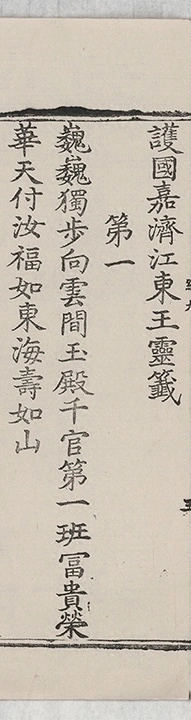 護國嘉濟江東王靈籤
第一
巍巍獨步向雲間玉殿千官第一班冨貴榮
華天付汝福如東海壽如山